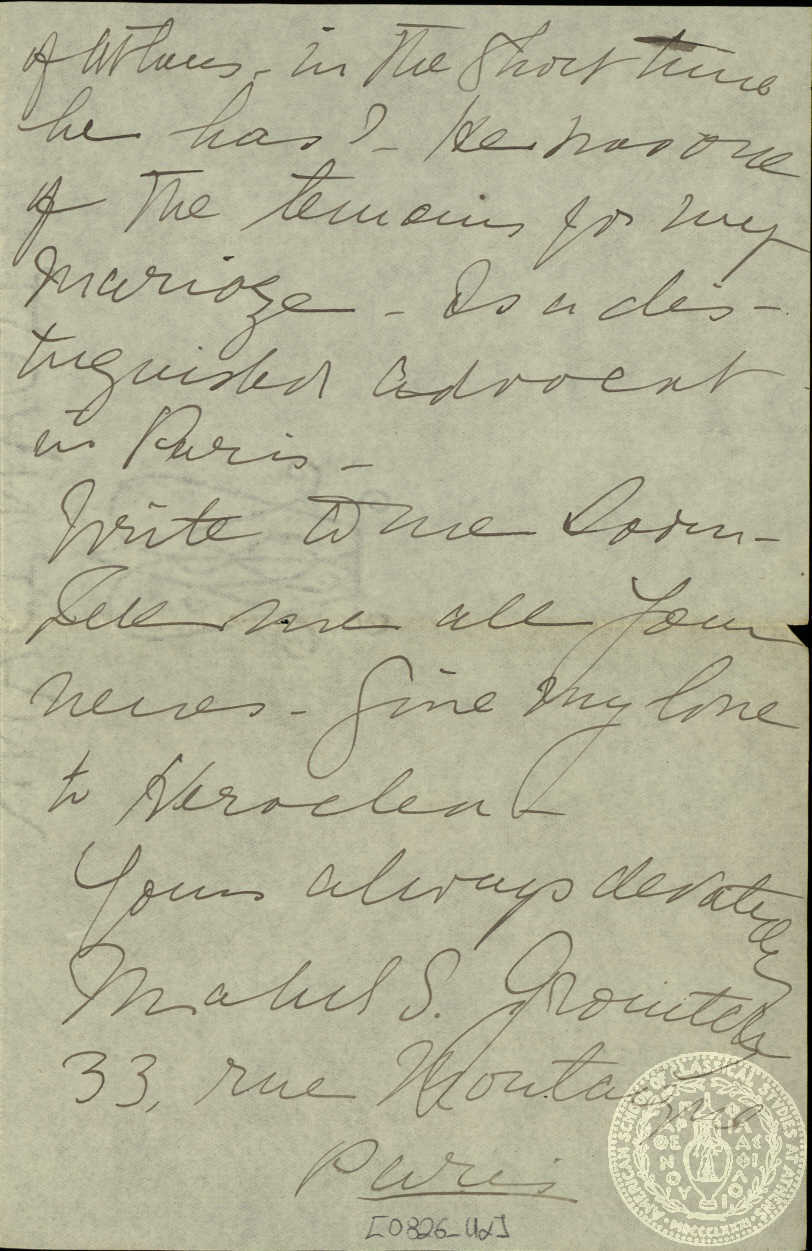 of Athens - in the short time
he has? - He was one
of the temoins for my
mariage - Is a dis-
tinguished advocat
in Paris -
Write to me soon -
Tell me all your
news - Give my love
to Heraclea -
Yours always devotedly
Mabel S. Grouitch
33, rue Montaigne
Paris
[0826_42]
AMERICAN SCHOOL OF CLASSICAL STUDIES AT ATHENS
MDCCCLXXXI
ΠΑΡΘΕΝΟΥ